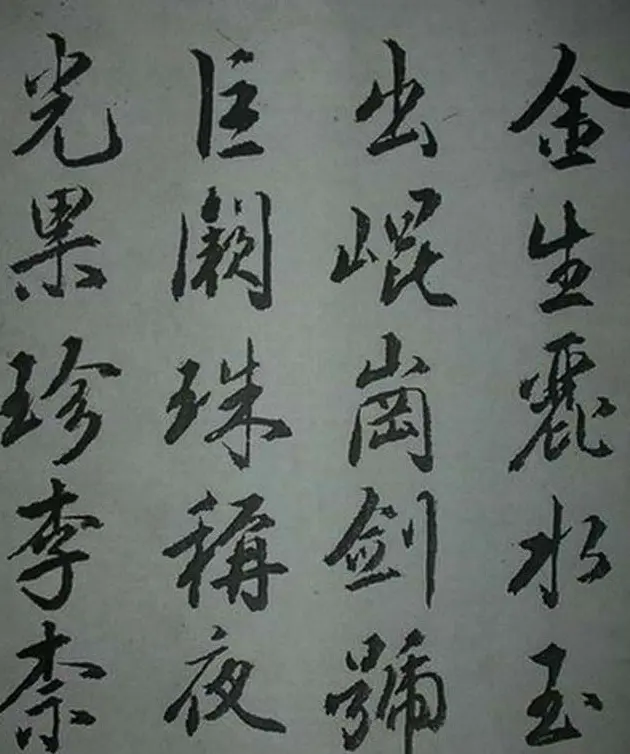 金生麗水玉
出崐崗劍號
巨闕珠稱夜
光果珍李柰